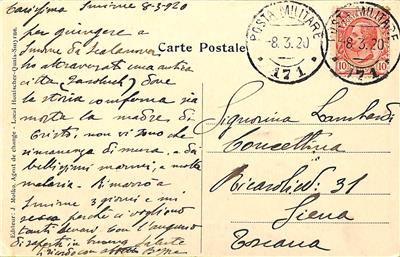 Carissima Smirne 8-3-920
per giungere a
Smirne di Scalanova
ho attraversato una antica
città (          ) dove
la storia conferma sia
morta la madre di
Cristo, non vi sono che
rimanenza di mura, e dei
bellissimi marmi, e molta
malaria. Rimarrò a
Smirne 3 giorni e mi
secca perché ci vogliono
tanti denari. Con l'augurio
di saperti in buona salute
ti ricordo con
Carte Postale
POSTA MILITARE
-8.3.20
171
POSTA MILITARE
-8.3.20
171
10 10
Signorina Lambardi
Concettina
Ricasoli di: 31
Siena
Toscana
Editeur: J. Molko, Agent de change - Local Homscher-Quais-Smyrne.